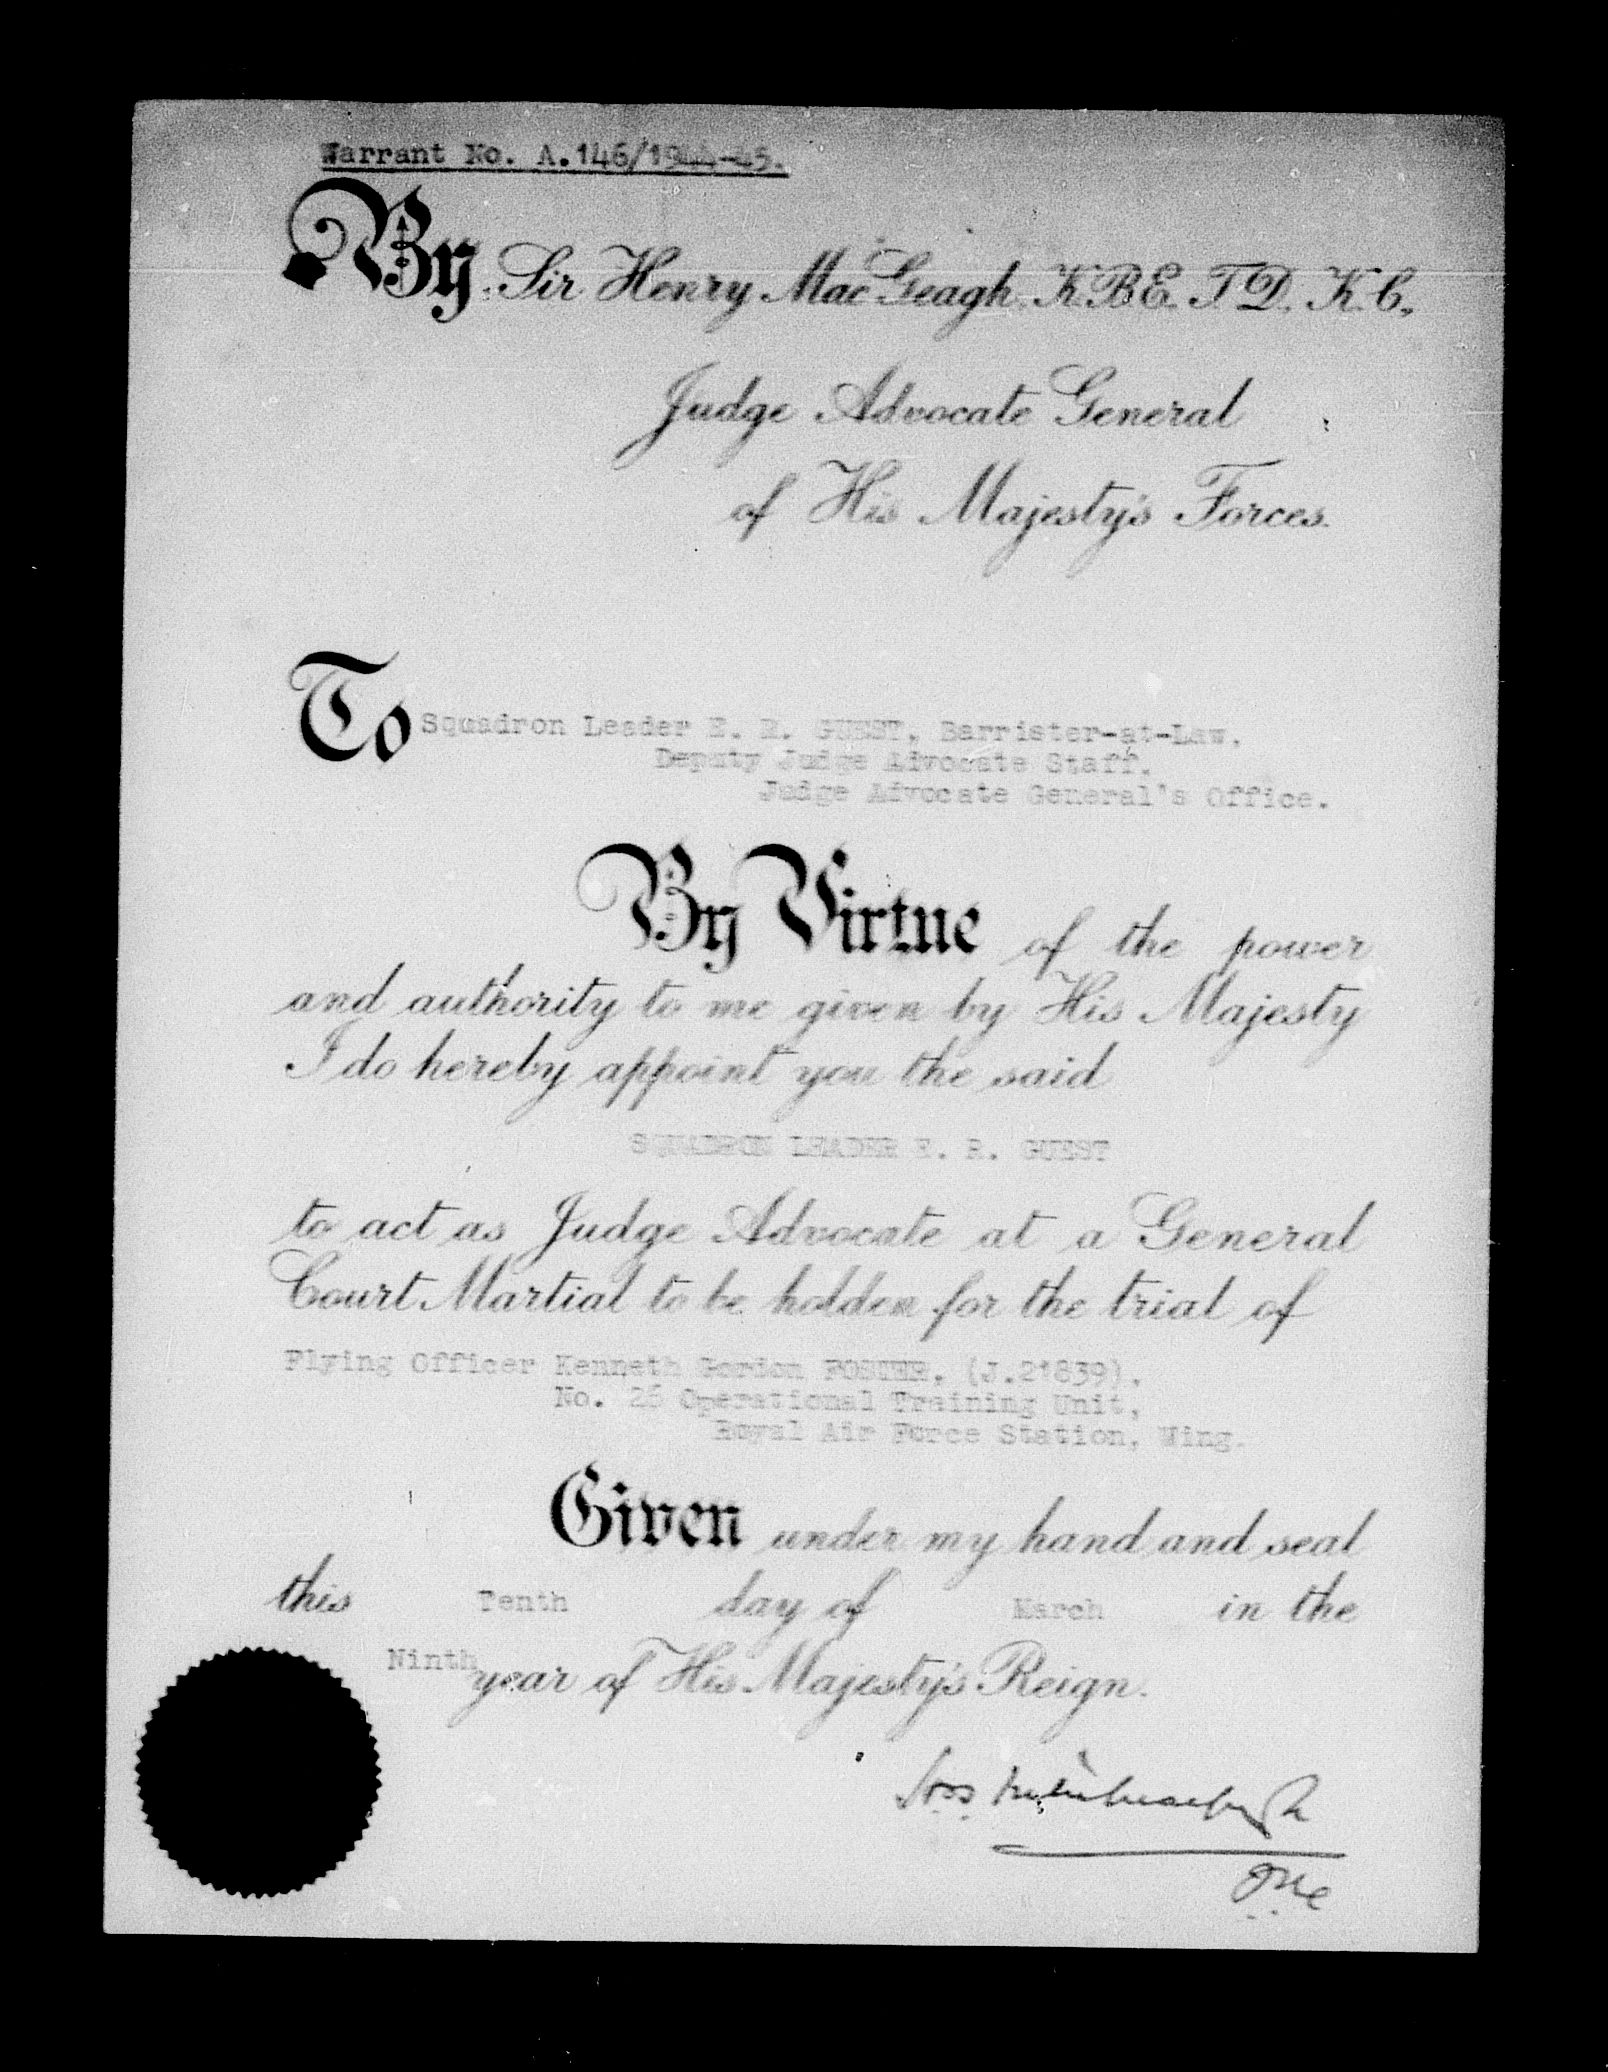 Warrant No. A.146/1944-45.
By Sir Henry MacGeagh, K.B.E. T.D. K.C.,
Judge Advocate General
of His Majesty's Forces.
To Squadron Leader E. R. GUEST, Barrister-at-Law,
Deputy Judge Advocate Staff,
Judge Advocate General's Office.
By Virtue of the power
and authority to me given by His Majesty
I do hereby appoint you the said
SQUADRON LEADER E. R. GUEST
to act as Judge Advocate at a General
Court Martial to be holden for the trial of
Flying Officer Kenneth Gordon FOSTER, (J.21839),
No. 26 Operational Training Unit,
Royal Air Force Station, Wing.
Given under my hand and seal
this Tenth day of March in the
Ninth year of His Majesty's Reign.